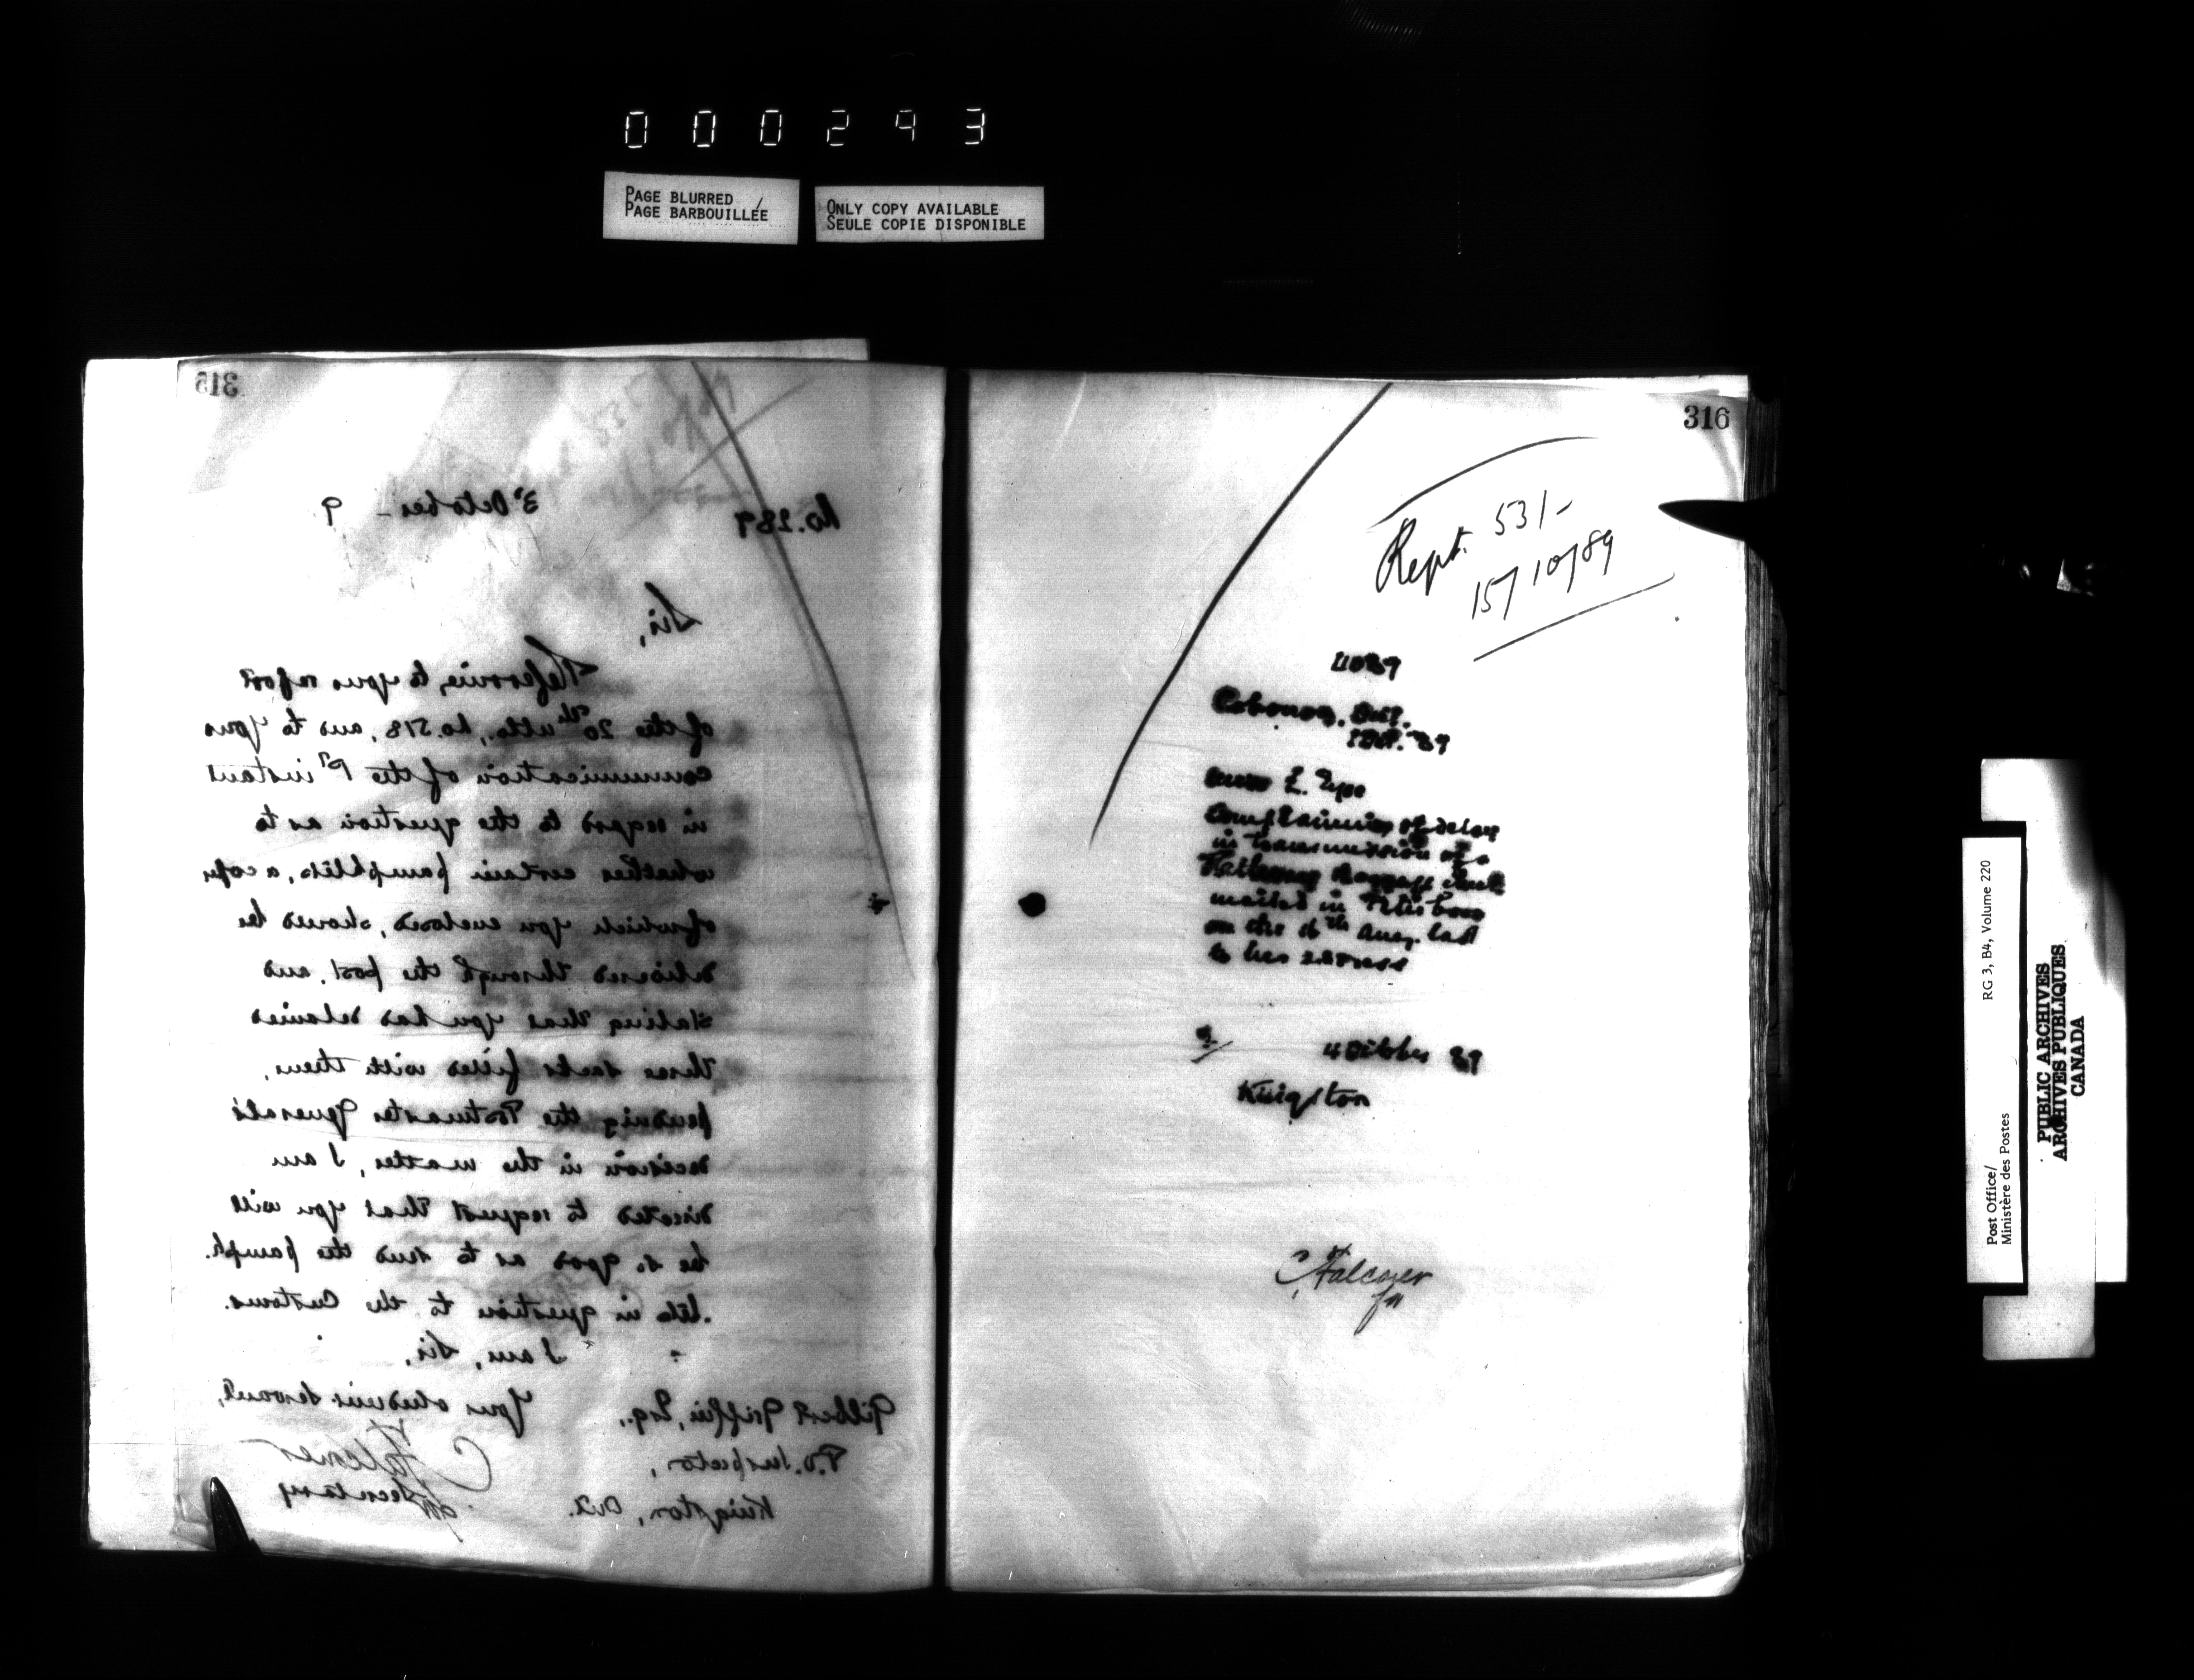 000293
PAGE BLURRED /
PAGE BARBOUILLÉE
ONLY COPY AVAILABLE
SEULE COPIE DISPONIBLE
315
No. 289
3d October - 9
Sir,
Referring to your report
of the 20th ulto., No. 518, and to your
communication of the 1st instant
in regard to the question as to
whether certain pamphlets, a copy
of which you enclosed, should be
delivered through the post, and
stating that you had detained
three sacks filled with them,
pending the Postmaster General's
decision in the matter, I am
directed to request that you will
be so good as to send the pamph-
lets in question to the Customs.
I am, Sir,
Your obedient Servant,
Gilbert Griffin, Esq.,
P.O. Inspector,
Kingston, Ont.
C Falconer
for Secretary
316
Rept. 531-
15/10/89
Cobourg, Ont.
1 Oct. 89
Complaining of delay
in transmission of a
mailed in Peterboro
on the 16th Aug. last
to her address
4 October 89
Kingston
C Falconer
for
Post Office/
Ministère des Postes
RG 3, B4, Volume 220
PUBLIC ARCHIVES
ARCHIVES PUBLIQUES
CANADA